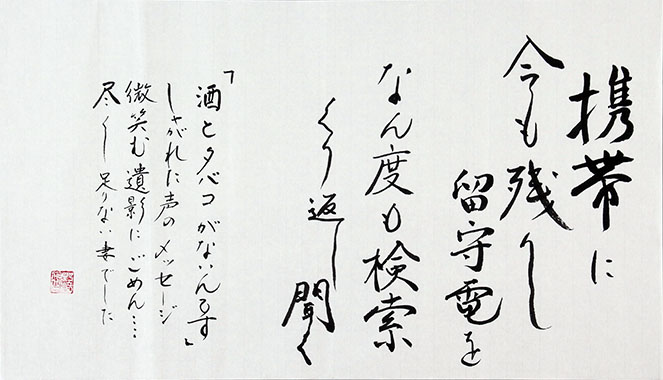 携帯に
今も残りし
留守電を
なん度も検索
くり返し聞く
「酒とタバコがないんです」
しがれた声のメッセージ
微笑む遺影にごめん…
尽くし足りない妻でした